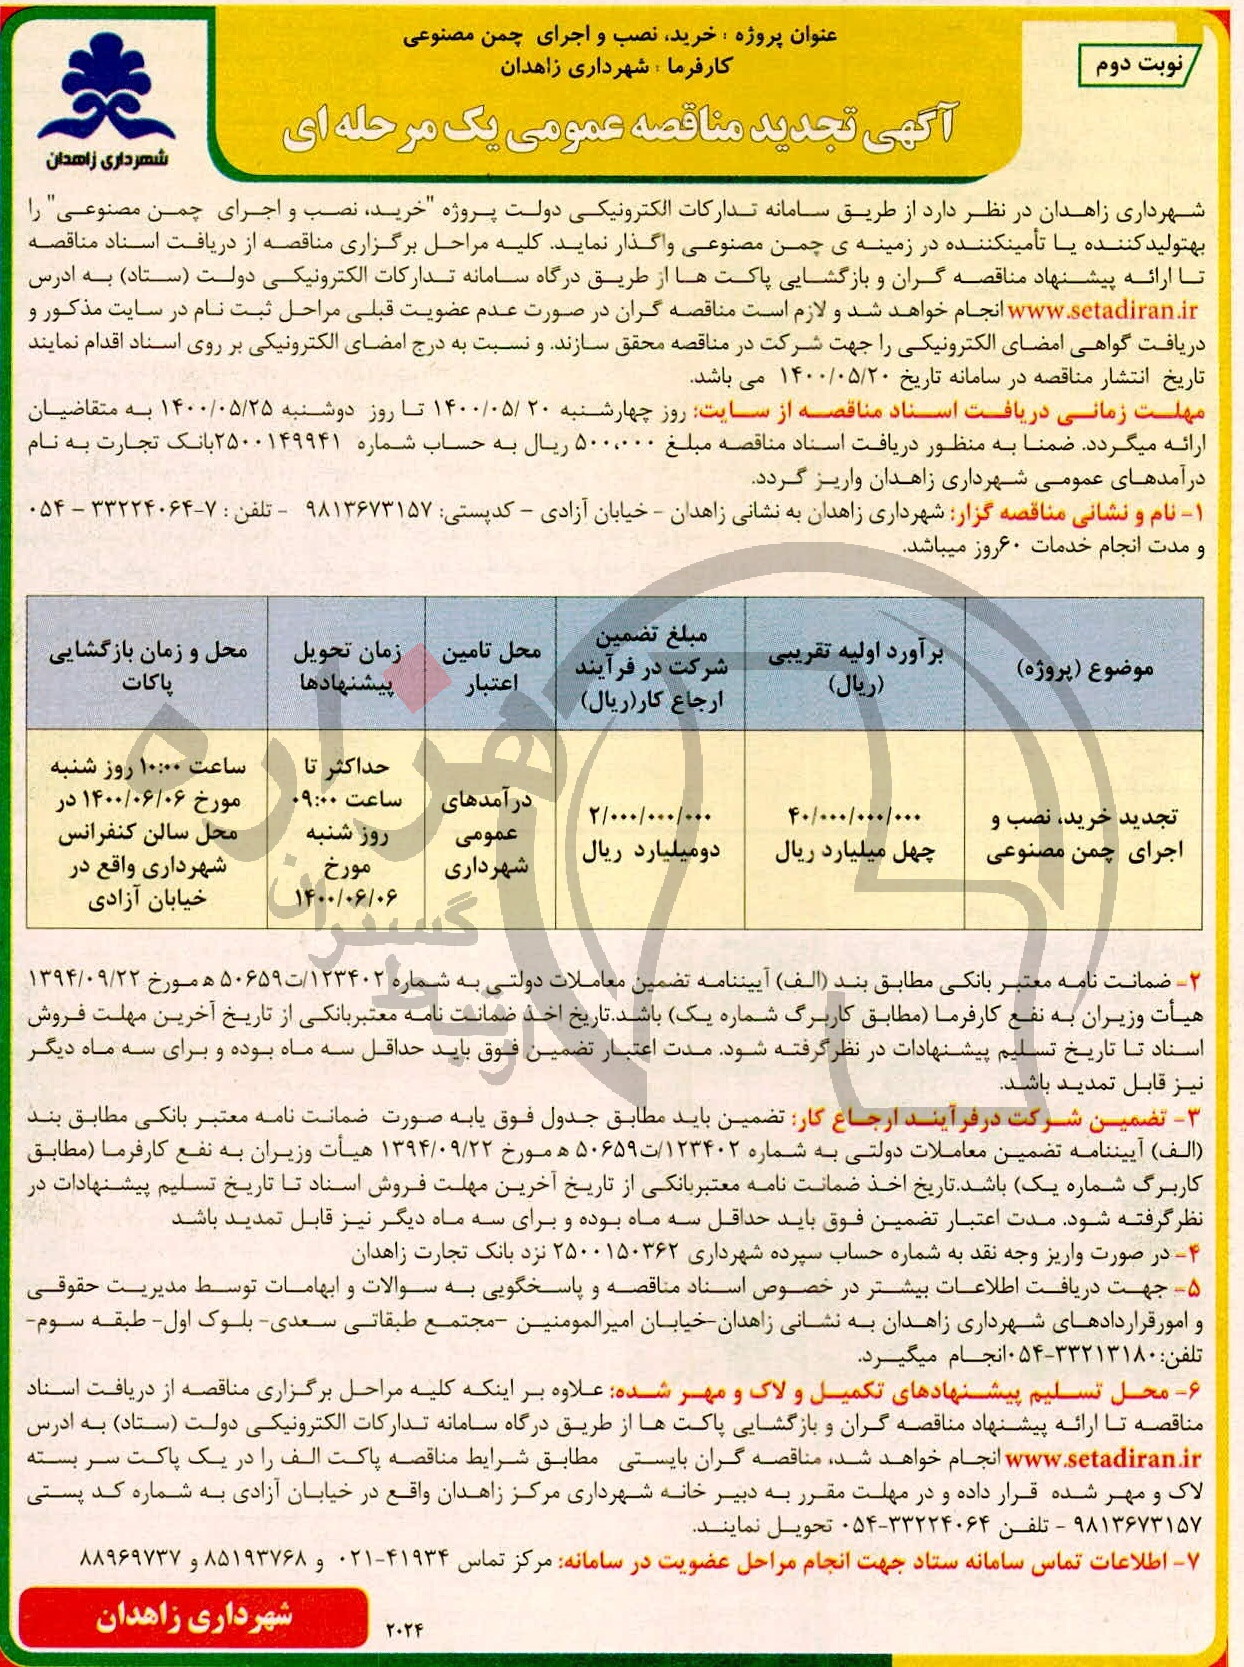 عنوان پروژه : خرید، نصب و اجرای چمن مصنوعی
کارفرما : شهرداری زاهدان
نوبت دوم
آگهی تجدید مناقصه عمومی یک مرحله ای
شهرداری زاهدان
شهرداری زاهدان در نظر دارد از طریق سامانه تدارکات الکترونیکی دولت پروژه "خرید، نصب و اجرای چمن مصنوعی" را
بهتولیدکننده یا تأمینکننده در زمینه ی چمن مصنوعی واگذار نماید. کلیه مراحل برگزاری مناقصه از دریافت اسناد مناقصه
تا ارائه پیشنهاد مناقصه گران و بازگشایی پاکت ها از طریق درگاه سامانه تدارکات الکترونیکی دولت (ستاد) به ادرس
www.setadiran.ir انجام خواهد شد و لازم است مناقصه گران در صورت عدم عضویت قبلی مراحل ثبت نام در سایت مذکور و
دریافت گواهی امضای الکترونیکی را جهت شرکت در مناقصه محقق سازند. و نسبت به درج امضای الکترونیکی بر روی اسناد اقدام نمایند
تاریخ انتشار مناقصه در سامانه تاریخ ۱۴۰۰/۰۵/۲۰ می باشد.
مهلت زمانی دریافت اسناد مناقصه از سایت: روز چهارشنبه ۲۰ /۱۴۰۰/۰۵ تا روز دوشنبه ۱۴۰۰/۰۵/۲۵ به متقاضیان
ارائه میگردد. ضمنا به منظور دریافت اسناد مناقصه مبلغ ۵۰۰،۰۰۰ ریال به حساب شماره ۲۵۰۰۱۴۹۹۴۱بانک تجارت به نام
درآمدهای عمومی شهرداری زاهدان واریز گردد.
۱- نام و نشانی مناقصه گزار: شهرداری زاهدان به نشانی زاهدان - خیابان آزادی - کدپستی: ۹۸۱۳۶۷۳۱۵۷ - تلفن : ۷-۳۳۲۲۴۰۶۴ – ۰۵۴
و مدت انجام خدمات ۶۰روز میباشد.
موضوع (پروژه)
برآورد اولیه تقریبی
(ریال)
مبلغ تضمین
شرکت در فرآیند
ارجاع کار(ریال)
محل تامین
اعتبار
زمان تحویل
پیشنهادها
محل و زمان بازگشایی
پاکات
تجدید خرید، نصب و
اجرای چمن مصنوعی
۴۰/۰۰۰/۰۰۰/۰۰۰
چهل میلیارد ریال
۲/۰۰۰/۰۰۰/۰۰۰
دومیلیارد ریال
درآمدهای
عمومی
شهرداری
حداکثر تا
ساعت ۰۹:۰۰
روز شنبه
مورخ
۱۴۰۰/۰۶/۰۶
ساعت ۱۰:۰۰ روز شنبه
مورخ ۱۴۰۰/۰۶/۰۶ در
محل سالن کنفرانس
شهرداری واقع در
خیابان آزادی
هزاره
گستران
ارتباط
۲- ضمانت نامه معتبر بانکی مطابق بند (الف) آییننامه تضمین معاملات دولتی به شماره ۱۲۳۴۰۲/ت۵۰۶۵۹ ه مورخ ۱۳۹۴/۰۹/۲۲
هیأت وزیران به نفع کارفرما (مطابق کاربرگ شماره یک) باشد.تاریخ اخذ ضمانت نامه معتبربانکی از تاریخ آخرین مهلت فروش
اسناد تا تاریخ تسلیم پیشنهادات در نظرگرفته شود. مدت اعتبار تضمین فوق باید حداقل سه ماه بوده و برای سه ماه دیگر
نیز قابل تمدید باشد.
۳- تضمین شرکت درفرآیند ارجاع کار: تضمین باید مطابق جدول فوق یابه صورت ضمانت نامه معتبر بانکی مطابق بند
(الف) آییننامه تضمین معاملات دولتی به شماره ۱۲۳۴۰۲/ت۵۰۶۵۹ ه مورخ ۱۳۹۴/۰۹/۲۲ هیأت وزیران به نفع کارفرما (مطابق
کاربرگ شماره یک) باشد.تاریخ اخذ ضمانت نامه معتبربانکی از تاریخ آخرین مهلت فروش اسناد تا تاریخ تسلیم پیشنهادات در
نظرگرفته شود. مدت اعتبار تضمین فوق باید حداقل سه ماه بوده و برای سه ماه دیگر نیز قابل تمدید باشد
۴- در صورت واریز وجه نقد به شماره حساب سپرده شهرداری ۲۵۰۰۱۵۰۳۶۲ نزد بانک تجارت زاهدان
۵- جهت دریافت اطلاعات بیشتر در خصوص اسناد مناقصه و پاسخگویی به سوالات و ابهامات توسط مدیریت حقوقی
و امورقراردادهای شهرداری زاهدان به نشانی زاهدان-خیابان امیرالمومنین -مجتمع طبقاتی سعدی- بلوک اول- طبقه سوم-
تلفن:۳۳۲۱۳۱۸۰-۰۵۴انجام میگیرد.
۶- محل تسلیم پیشنهادهای تکمیل و لاک و مهر شده: علاوه بر اینکه کلیه مراحل برگزاری مناقصه از دریافت اسناد
مناقصه تا ارائه پیشنهاد مناقصه گران و بازگشایی پاکت ها از طریق درگاه سامانه تدارکات الکترونیکی دولت (ستاد) به ادرس
www.setadiran.ir انجام خواهد شد، مناقصه گران بایستی مطابق شرایط مناقصه پاکت الف را در یک پاکت سر بسته
لاک و مهر شده قرار داده و در مهلت مقرر به دبیر خانه شهرداری مرکز زاهدان واقع در خیابان آزادی به شماره کد پستی
۹۸۱۳۶۷۳۱۵۷ - تلفن ۳۳۲۲۴۰۶۴-۰۵۴ تحویل نمایند.
۷- اطلاعات تماس سامانه ستاد جهت انجام مراحل عضویت در سامانه: مرکز تماس ۴۱۹۳۴-۰۲۱ و ۸۵۱۹۳۷۶۸ و ۸۸۹۶۹۷۳۷
شهرداری زاهدان
۲۰۲۴